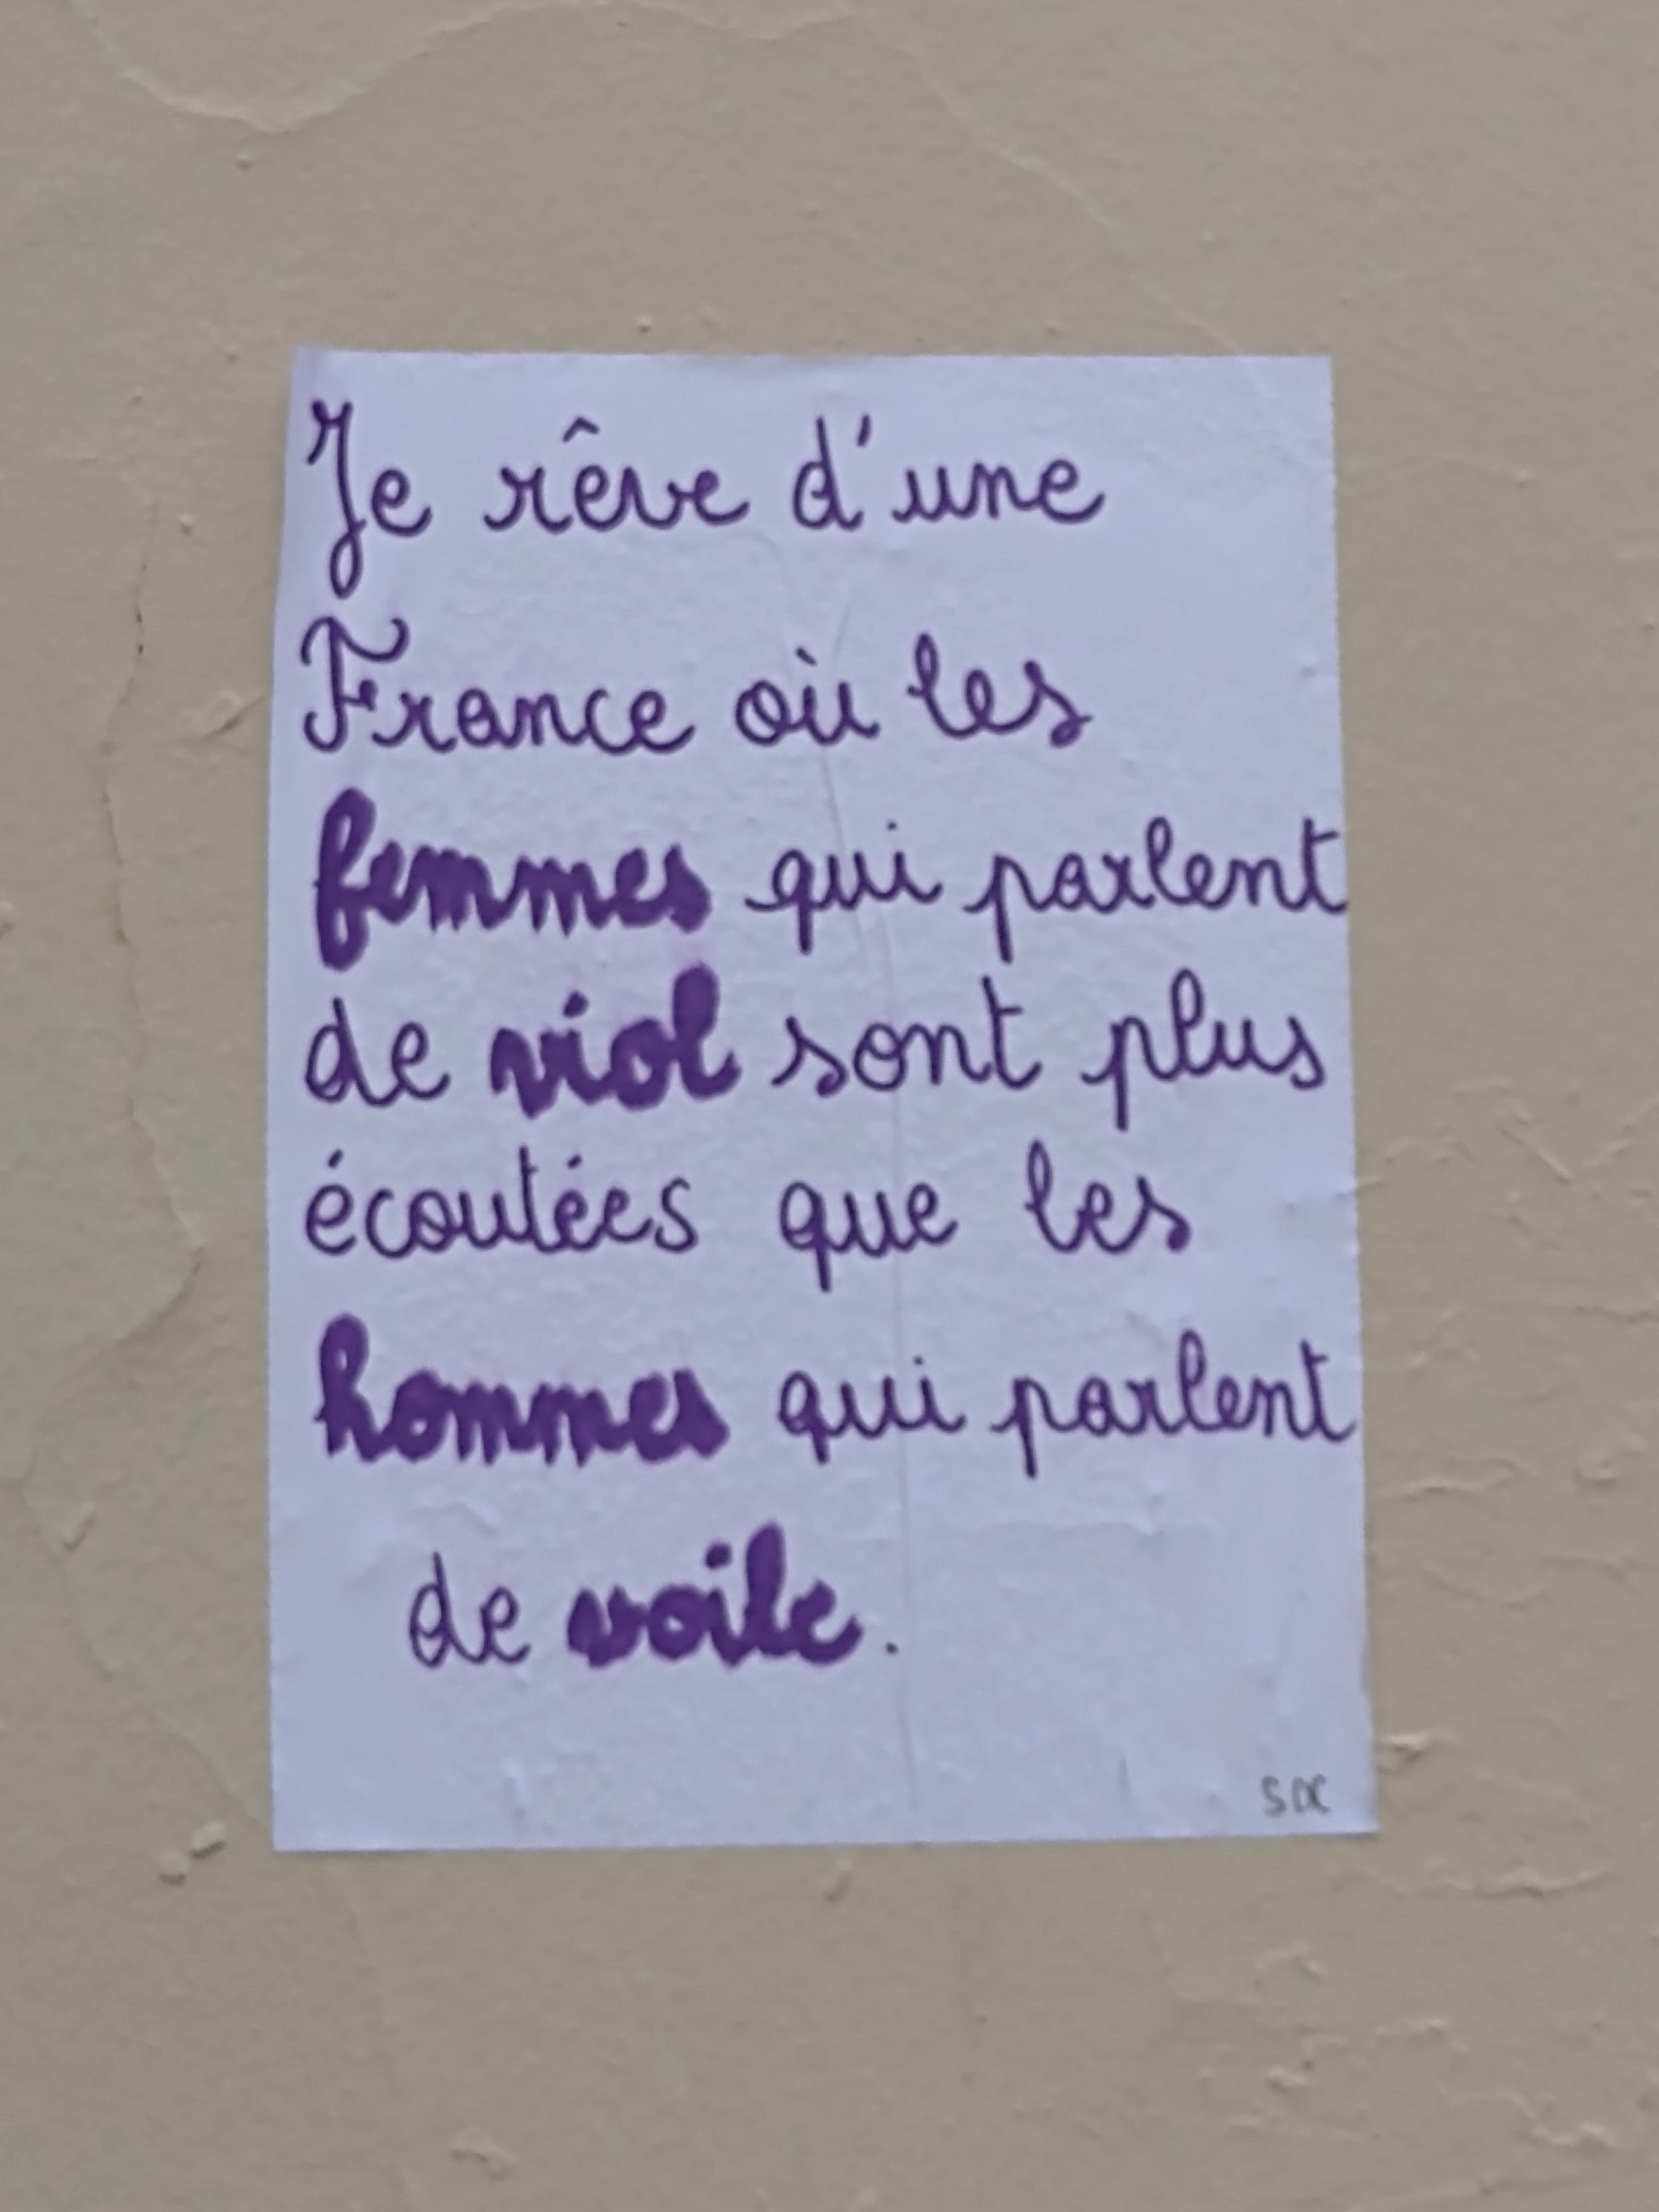 Je rêve d'une
France où les
femmes qui parlent
de viol sont plus
écoutées que les
hommes qui parlent
de voile.